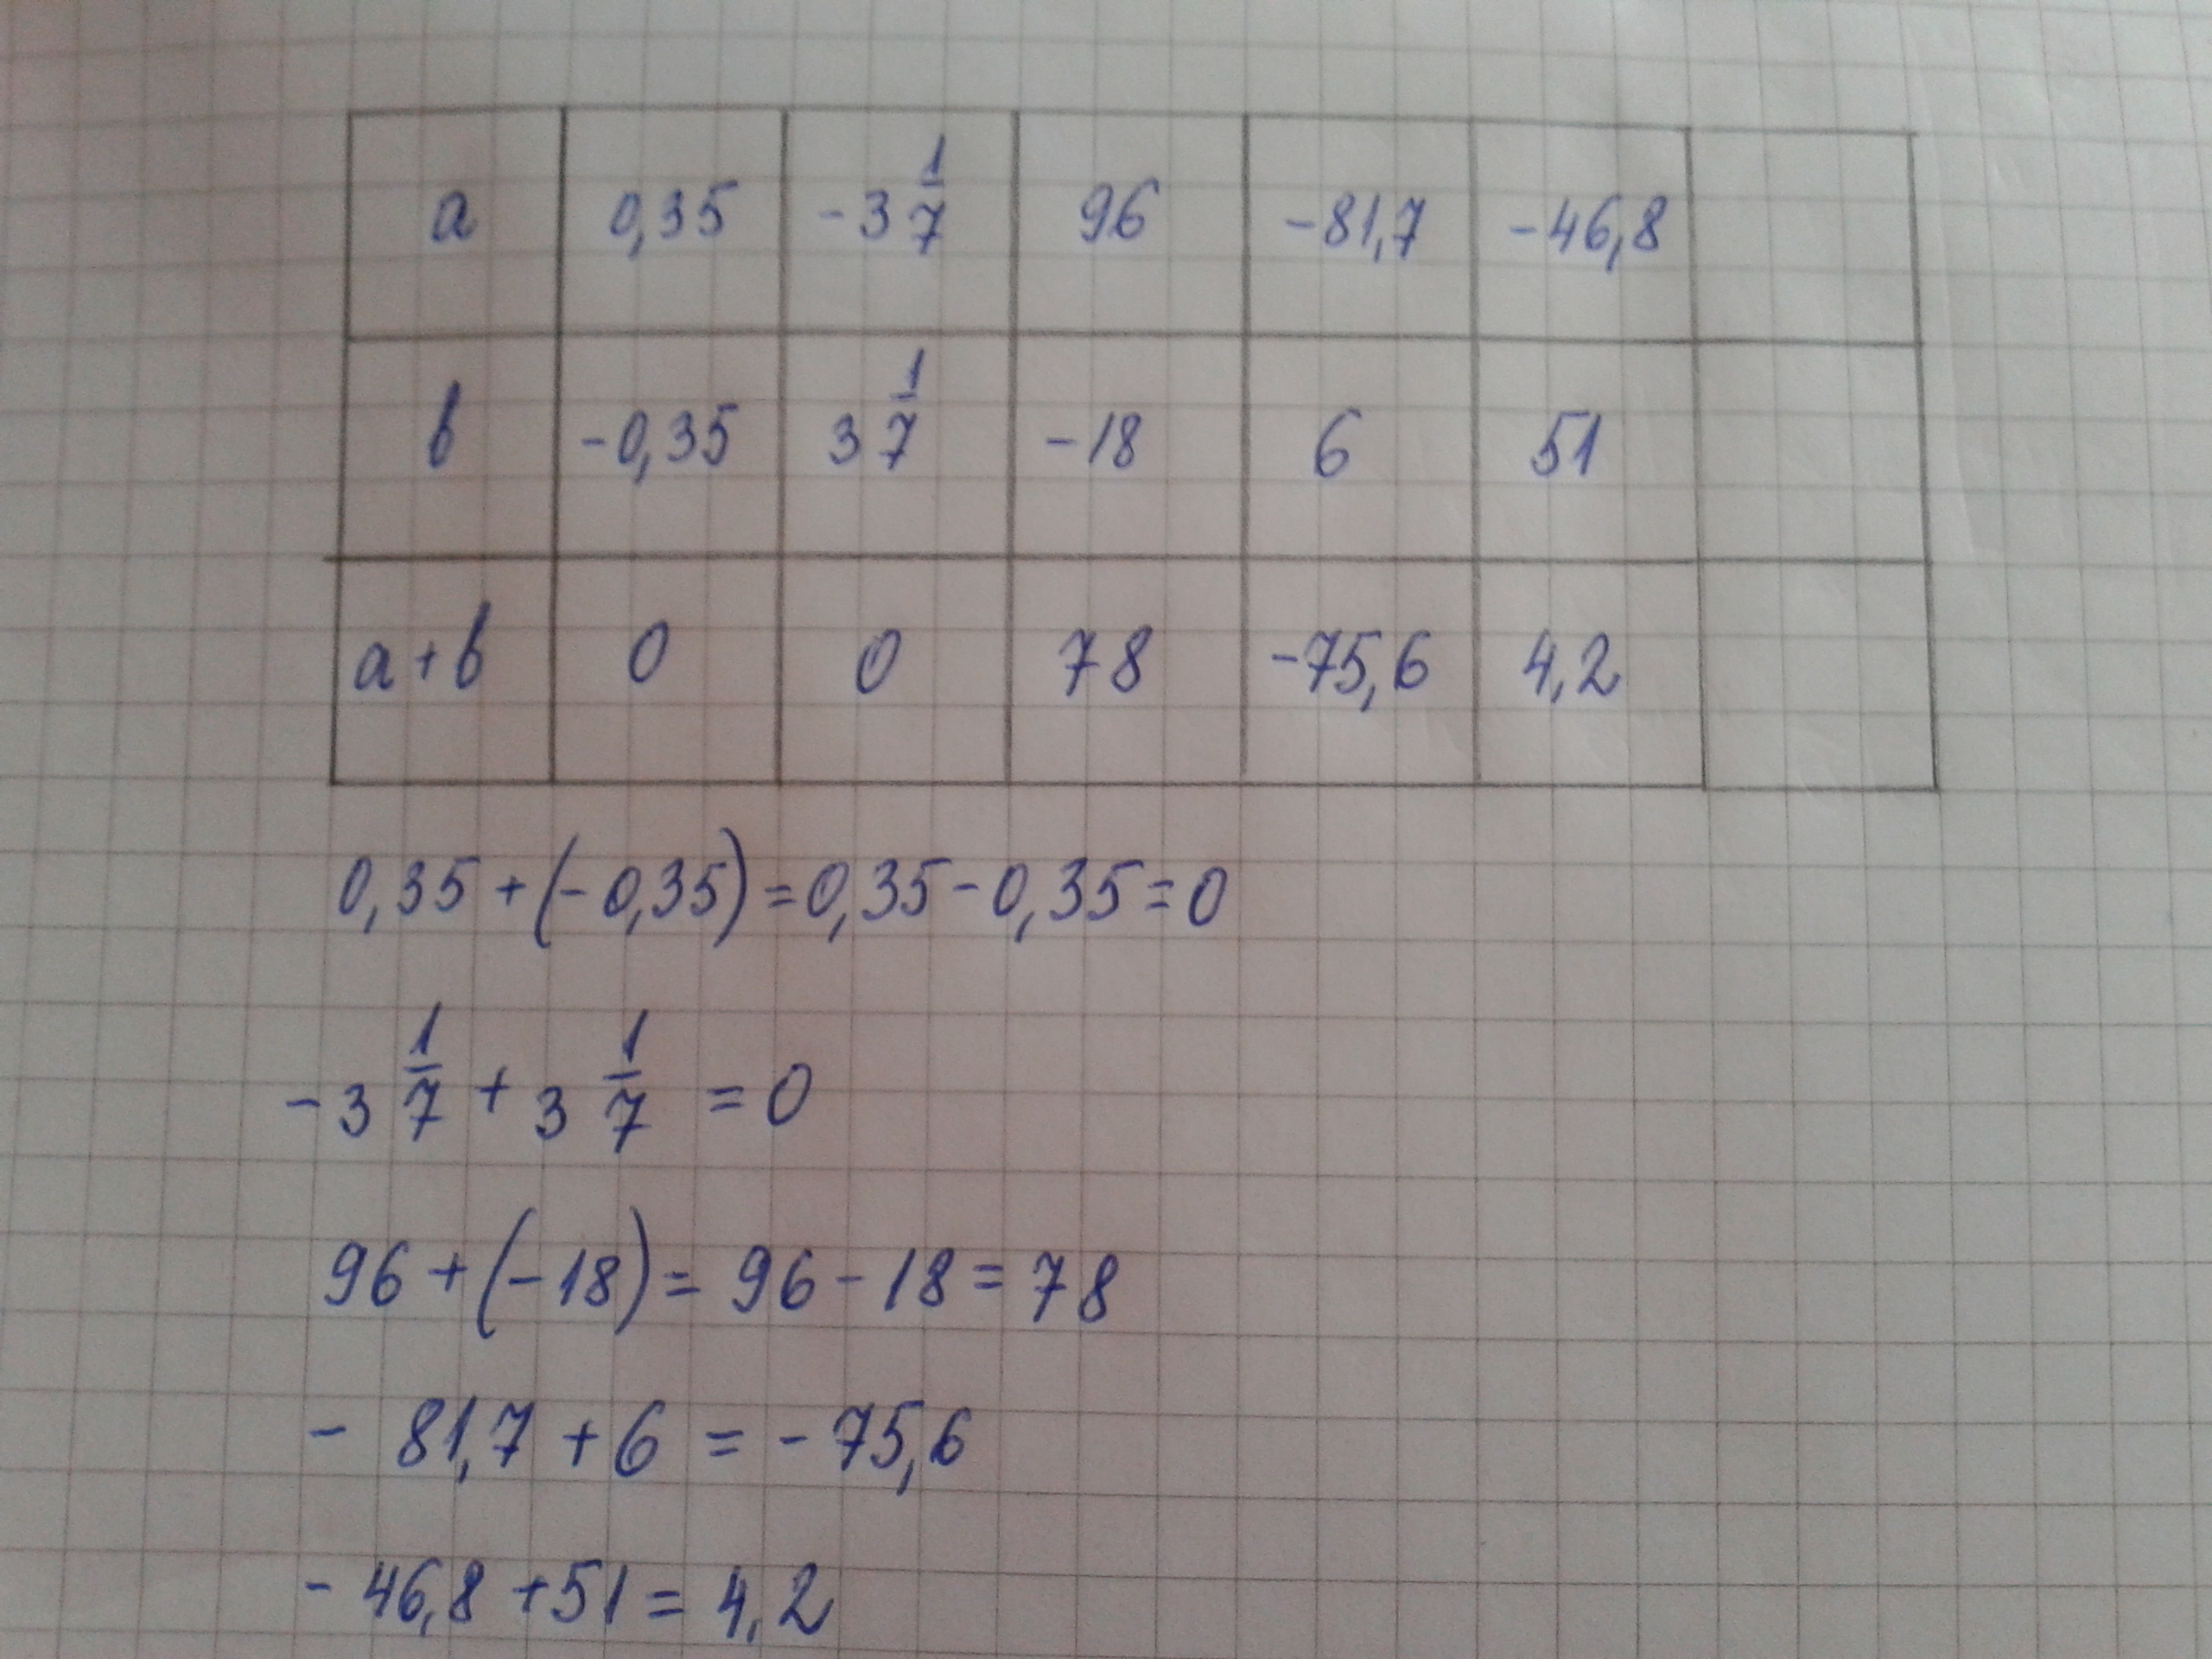 a 0,35 -3 1/7 96 -81,7 -46,8
b -0,35 3 1/7 -18 6 51
a+b 0 0 78 -75,6 4,2
0,35+(-0,35)=0,35-0,35=0
-3 1/7 + 3 1/7 = 0
96+(-18)= 96-18=78
- 81,7+6 = -75,6
- 46,8 +51= 4,2